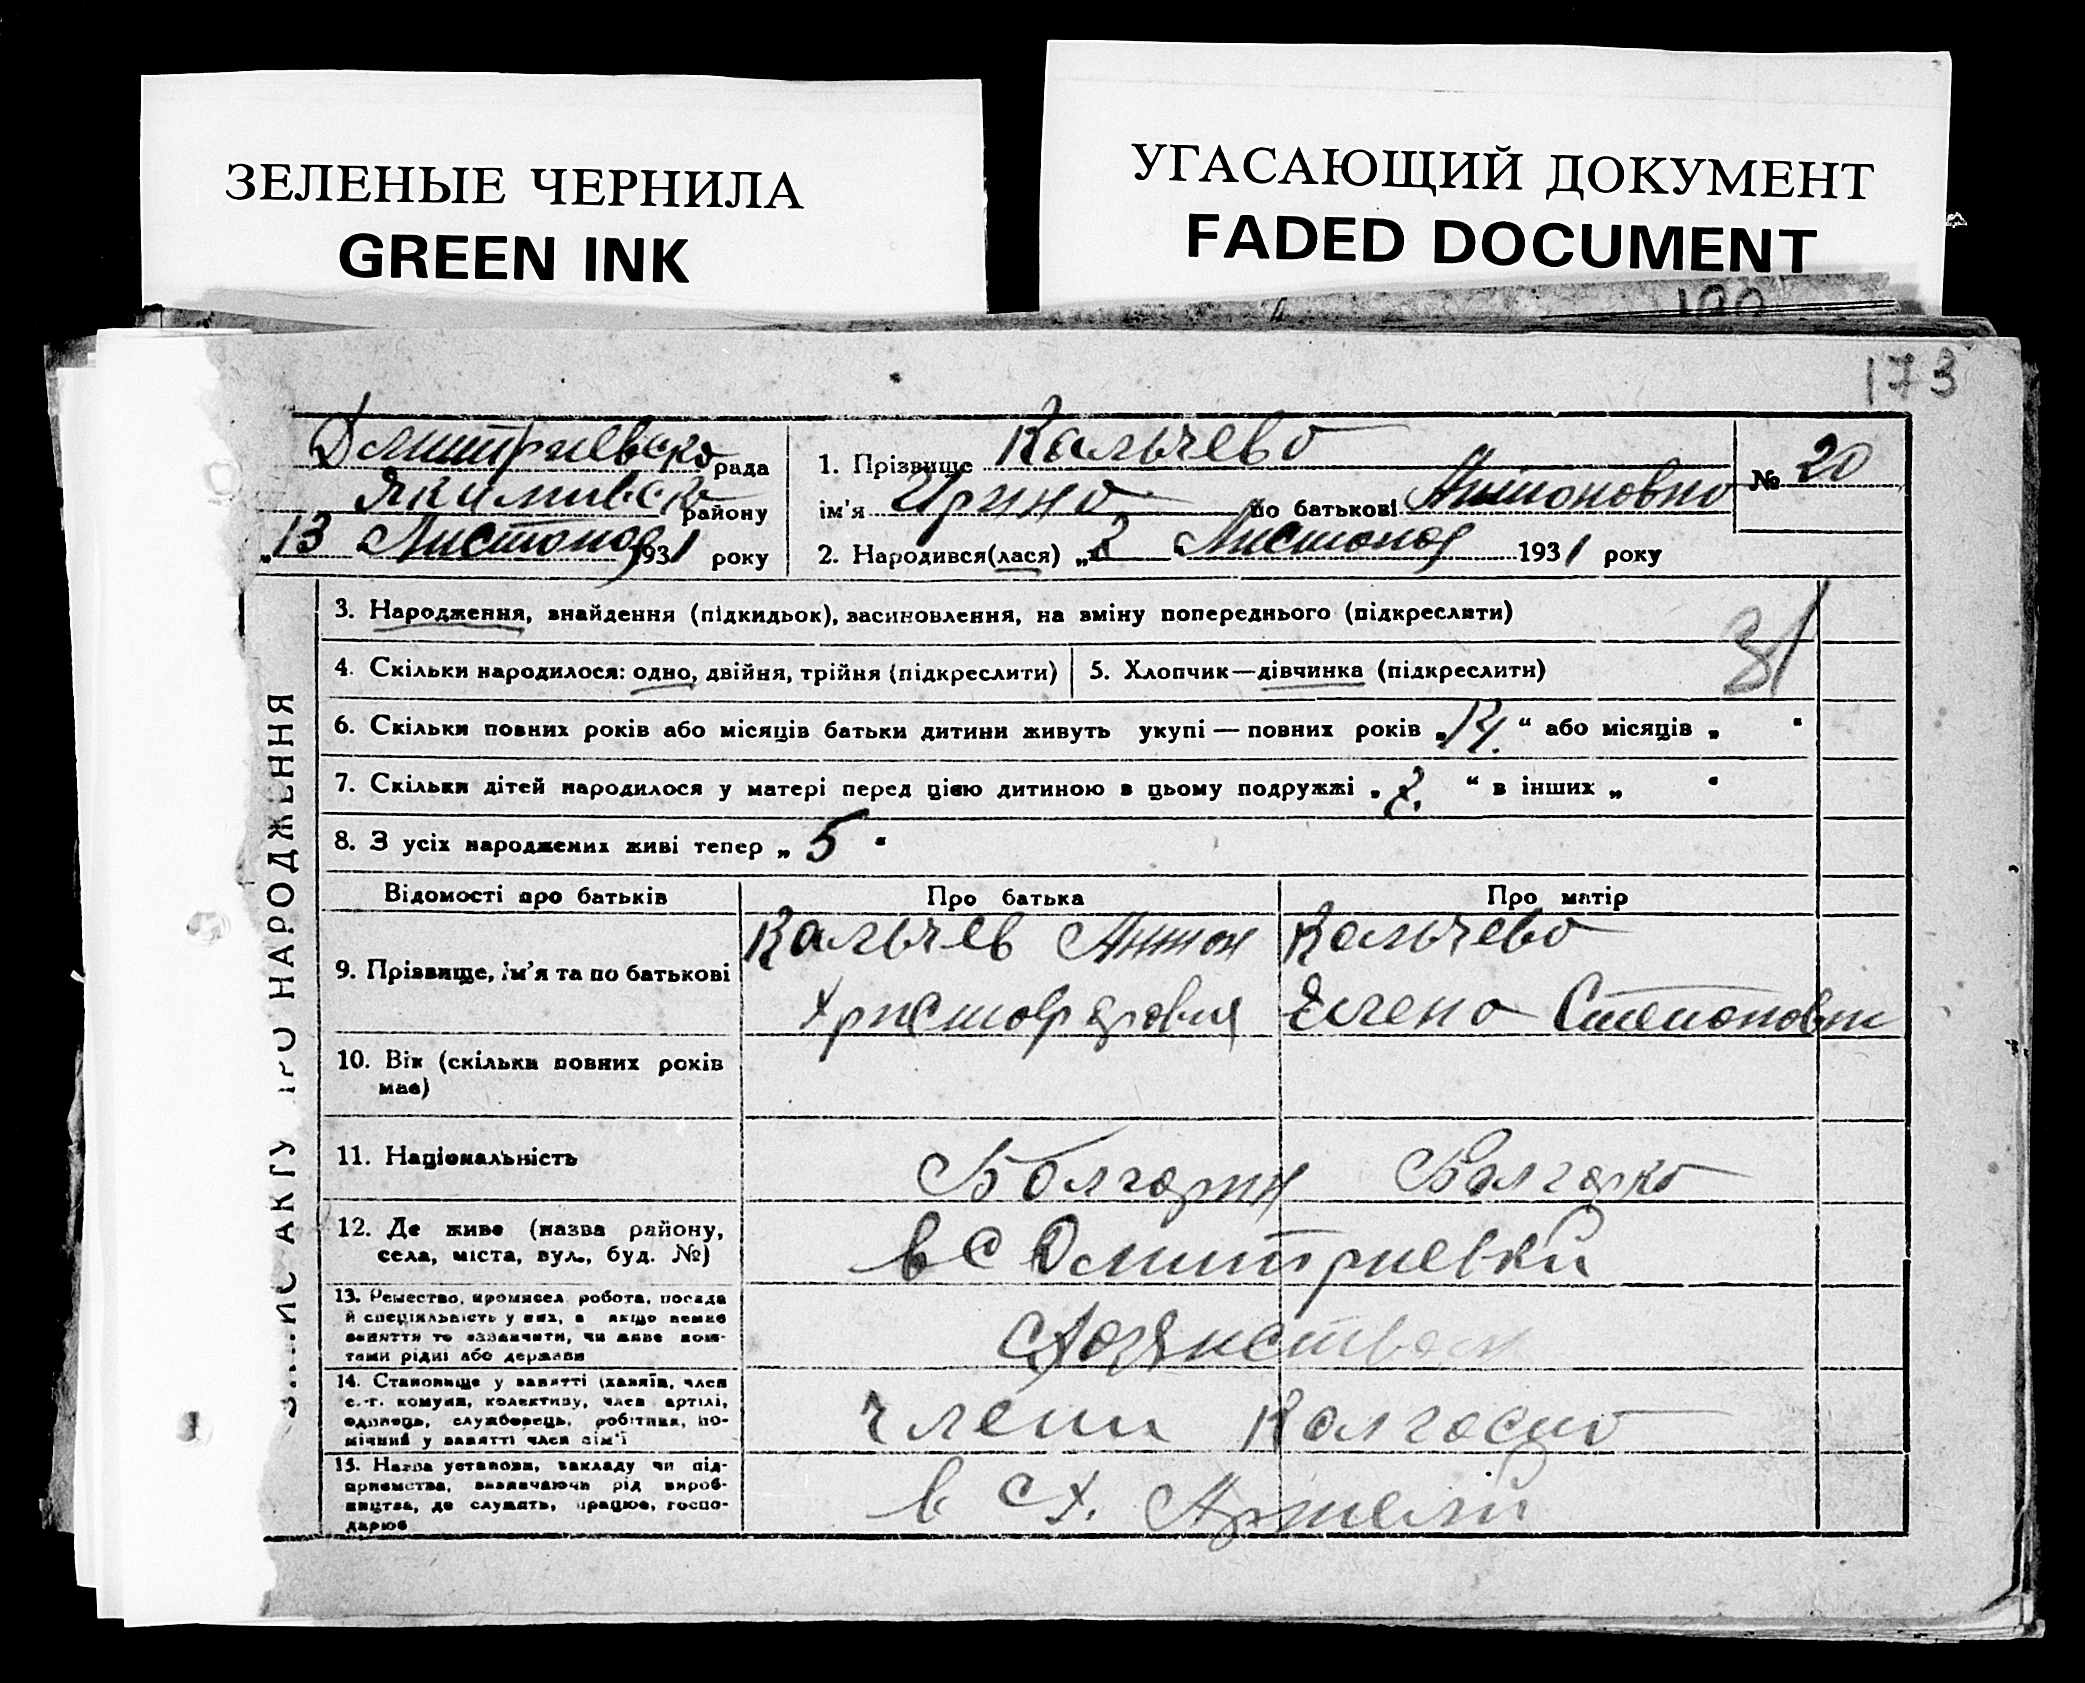 ЗЕЛЕНЫЕ ЧЕРНИЛА
GREEN INK
УГАСАЮЩИЙ ДОКУМЕНТ
FADED DOCUMENT
173
Дмитриевско рада
Якимивско району
„13 Листопад 1931 року
1. Прізвище Кальчева
ім'я Ирина по батькові Антоновна
№ 20
2. Народився(лася) „2 Листопад 1931 року
ЗАПИС АКТУ ПРО НАРОДЖЕННЯ
3. Народження, знайдення (підкидьок), засиновлення, на зміну попереднього (підкреслити)
31
4. Скільки народилося: одно, двійня, трійня (підкреслити)
5. Хлопчик—дівчинка (підкреслити)
6. Скільки повних років або місяців батьки дитини живуть укупі — повних років „14." або місяців „ "
7. Скільки дітей народилося у матері перед цією дитиною в цьому подружжі „ " в інших „ "
8. З усіх народжених живі тепер „ 5 "
Відомості про батьків
Про батька
Про матір
9. Прізвище, ім'я та по батькові
Кальчев Антон
Христофорович
Кальчева
Елена Степановна
10. Вік (скільки повних років
має)
11. Національність
Болгарин
Болгарка
12. Де живе (назва району,
села, міста, вул., буд. №)
в с Дмитриевки
13. Ремество, промисел, робота, посада
й спеціяльність у них, а якщо немає
заняття то зазначити, чи живе кош-
тами рідні або держави
14. Становище у занятті (хазяїн, член
с.-г. комуни, колективу, член артілі,
одинець, службовець, робітник, по-
мічний у занятті член сім'ї
члени Колгоспа
15. Назва установи, закладу чи під-
приємства, зазначаючи рід вироб-
ництва, де служать, працює, госпо-
дарює
в с х. Артели